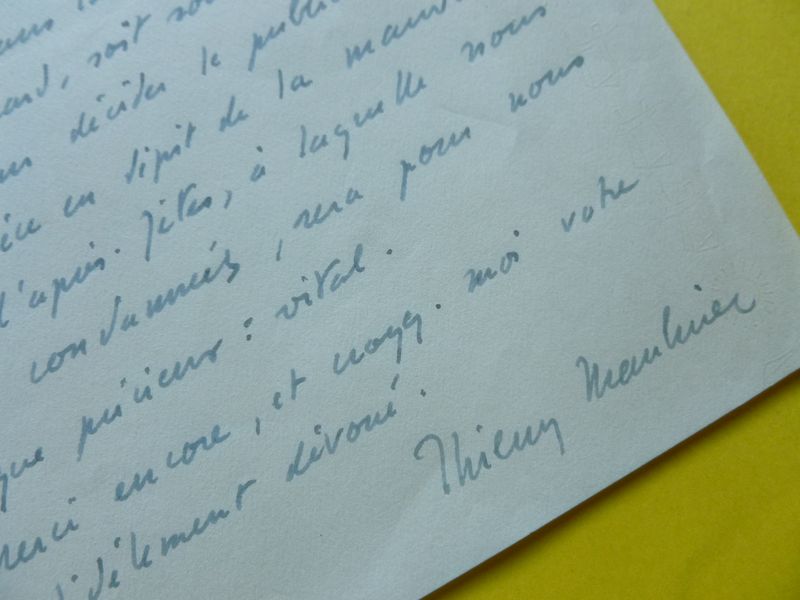 soit
décider le public
en dépit de la
d'après-fêtes, à laquelle nous
condamnés, sera pour nous
que précieux : vital.
merci encore, et croyez-moi votre
fidèlement dévoué.
Thierry Maulnier